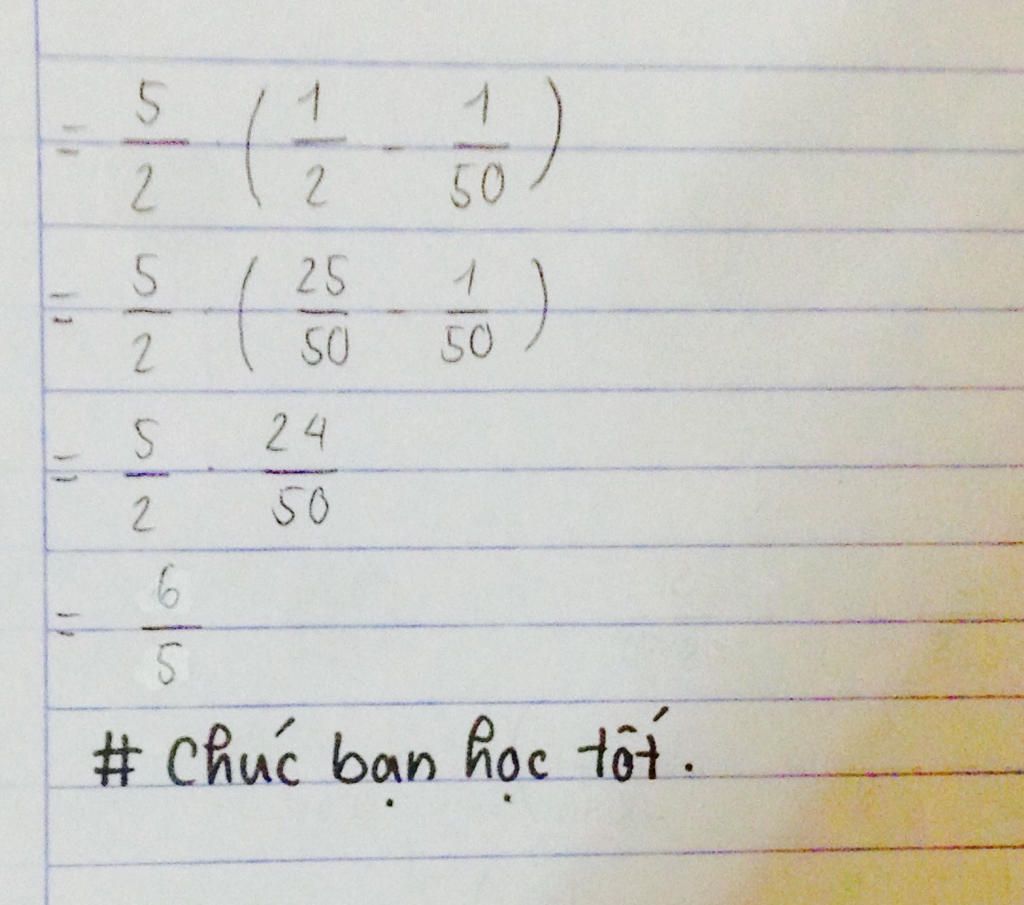 = 5/2 · (1/2 - 1/50)
= 5/2 · (25/50 - 1/50)
= 5/2 · 24/50
= 6/5
# Chúc bạn học tốt.